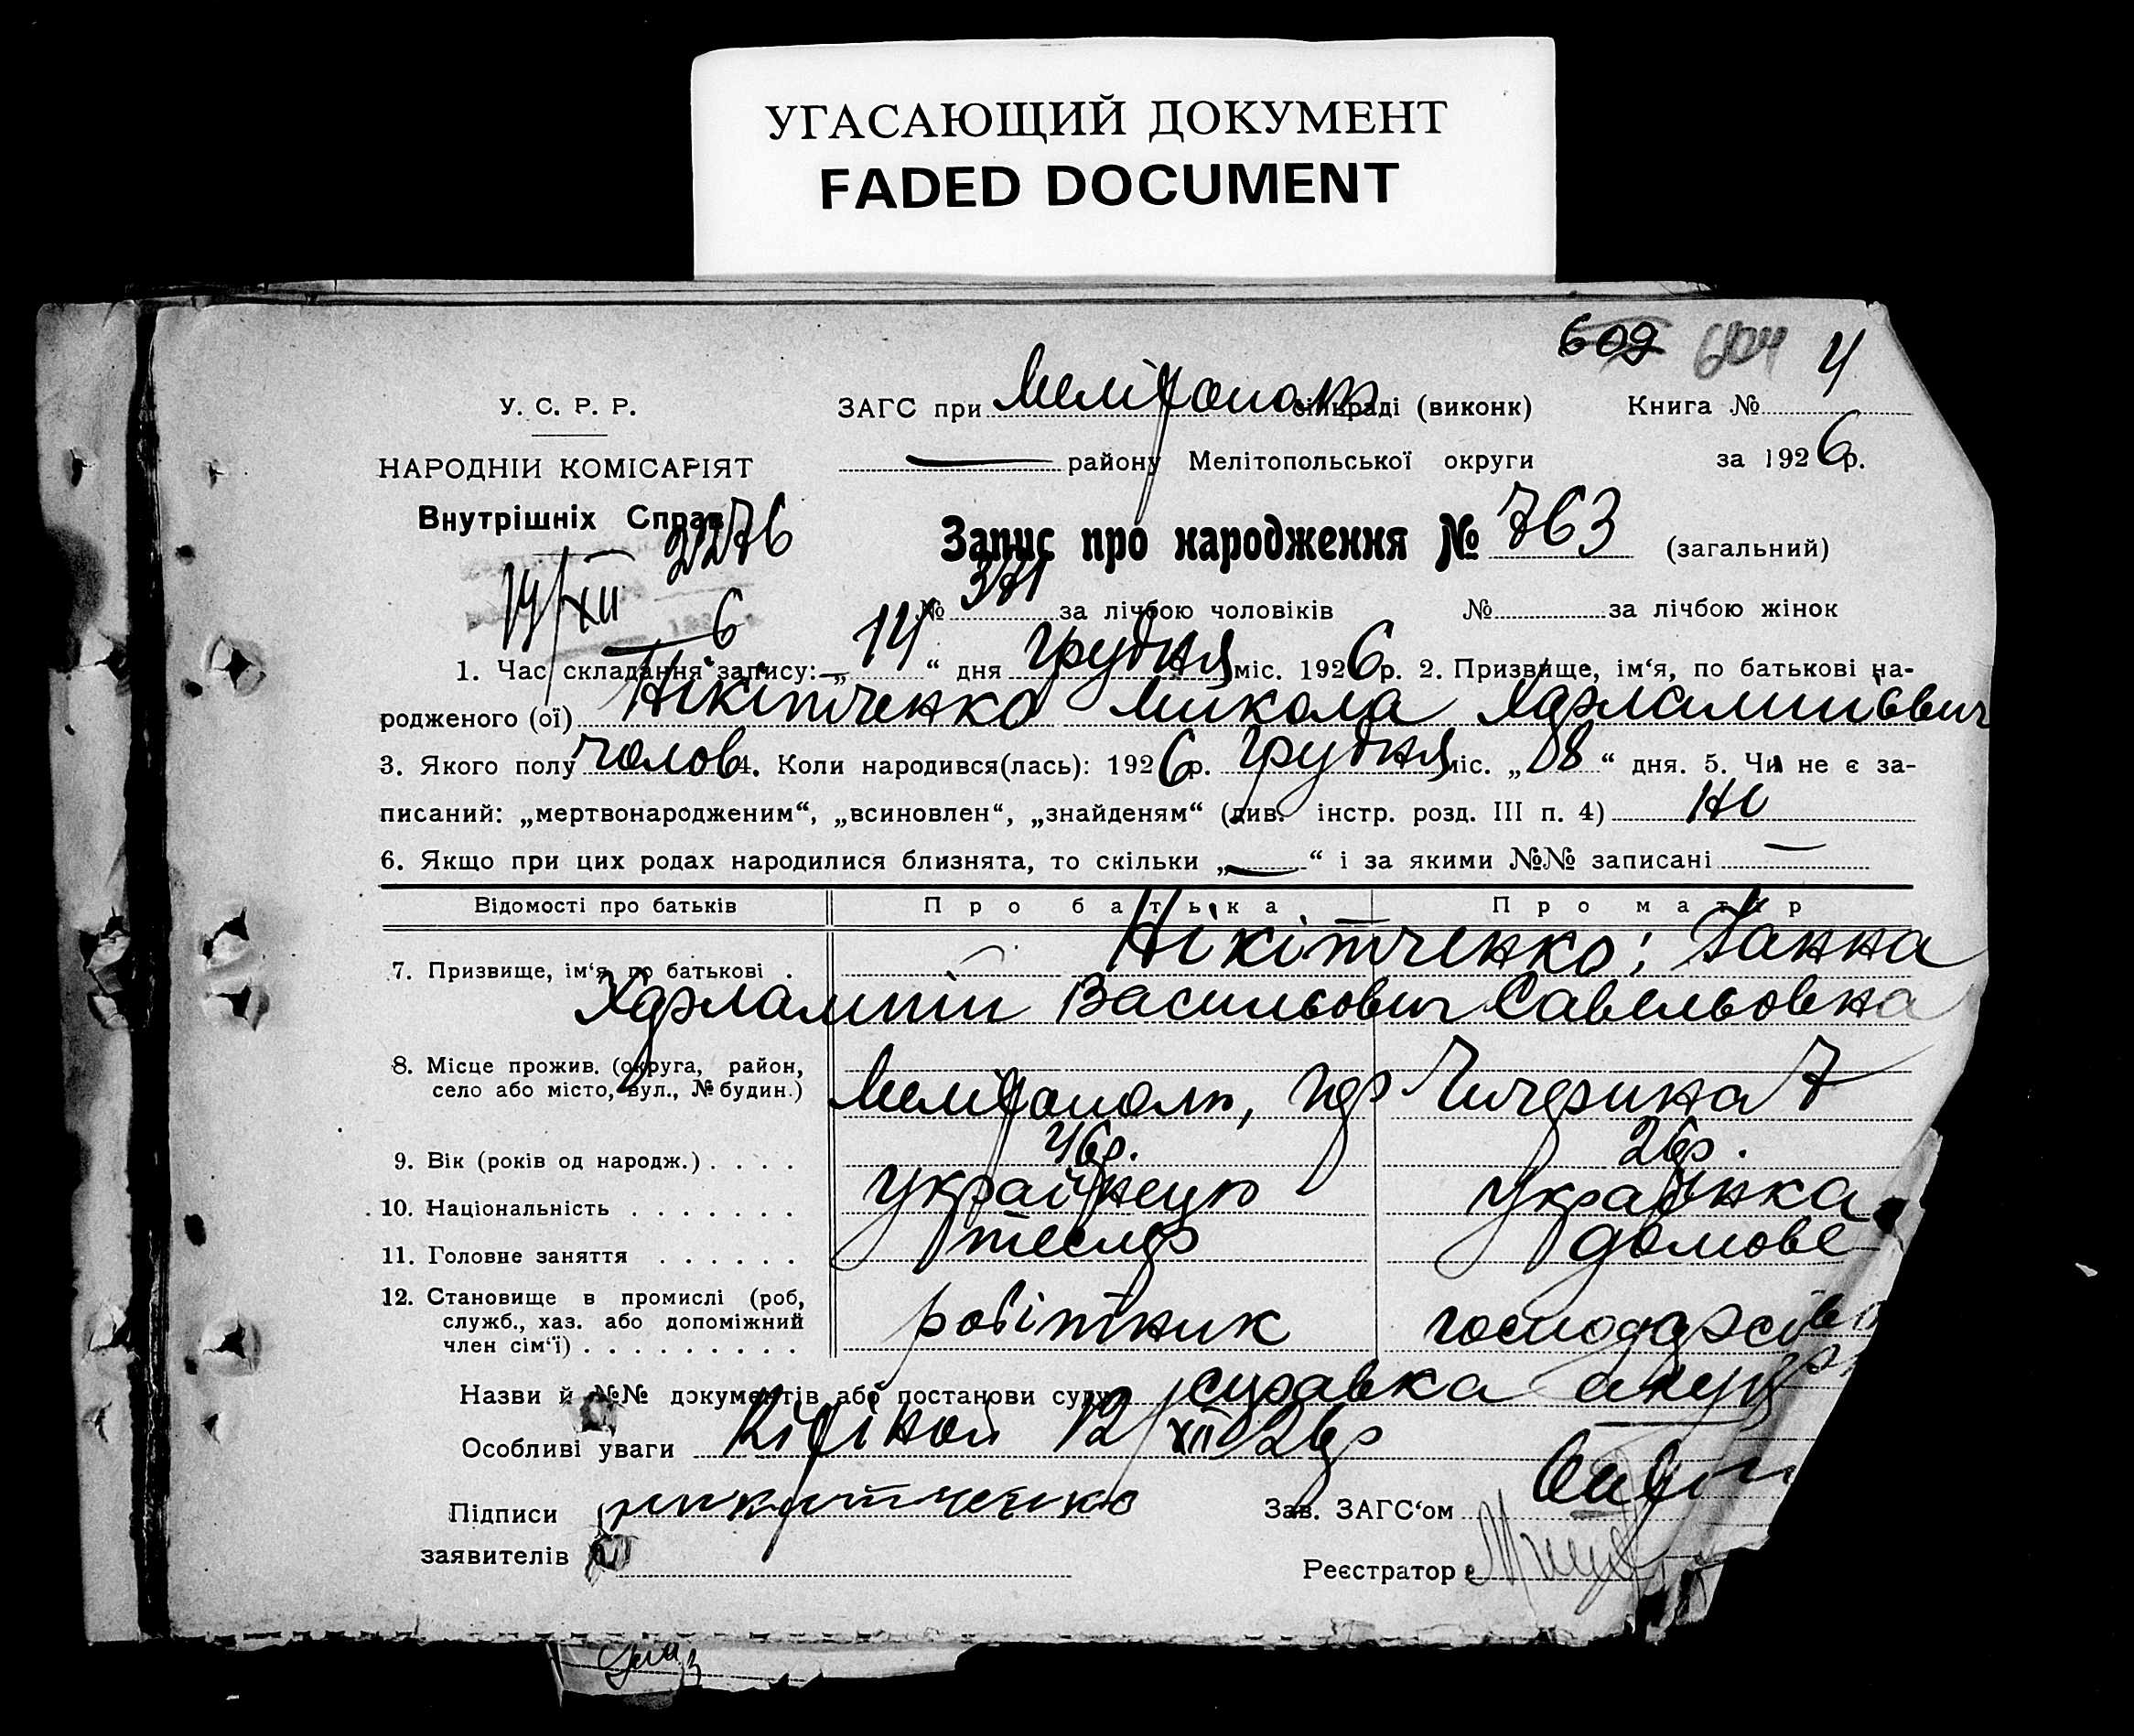 УГАСАЮЩИЙ ДОКУМЕНТ
FADED DOCUMENT
609 4
У. С. Р. Р. ЗАГС при Меліτополь сільраді (виконк) Книга №
НАРОДНІЙ КОМІСАРІЯТ — району Мелітопольської округи за 1926р.
Внутрішніх Справ 2276
Запис про народження № 763 (загальний)
14/XII 6
№ 371 за лічбою чоловіків № за лічбою жінок
1. Час складання запису: „14“ дня грудня міс. 1926р. 2. Призвище, ім‘я, по батькові на-
родженого (ої) Нікітченко Микола Харлампійович
3. Якого полу чолов 4. Коли народився(лась): 1926р. грудня міс. „08“ дня. 5. Чи не є за-
писаний: „мертвонародженим“, „всиновлен“, „знайденям“ (див. інстр. розд. III п. 4) Ні
6. Якщо при цих родах народилися близнята, то скільки „—“ і за якими №№ записані —
Відомості про батьків Про батька Про матір
7. Призвище, ім‘я, по батькові . Нікітченко; Ганна
Харлампій Васильович Савельовна
8. Місце прожив. (округа, район,
село або місто, вул., № будин.) Мелітополь, пер Чичерина 7
9. Вік (років од народж.) . . . . 46р. 26р.
10. Національність . . . . . . . українець українка
11. Головне заняття . . . . . . тесляр домове
12. Становище в промислі (роб,
служб., хаз. або допоміжний
член сім‘ї) . . . . . . . . . робітник господарств
Назви й №№ документів або постанови суду справка акуш
Особливі уваги 12/XII 26р
Підписи Никитченко Зав. ЗАГС‘ом
заявителів
Реєстратор